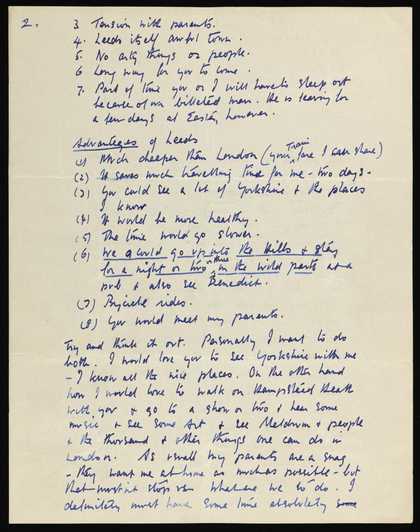 2.
3 Tension with parents.
4. Leeds itself awful town.
5. No arty things or people.
6 Long way for you to come.
7. Part of time you or I will have to sleep out
because of our billeted man. He is leaving for
a few days at Easter, however.
Advantages of Leeds
(1) Much cheaper than London (your Train fare I can share)
(2) It saves much travelling time for me - two days -
(3) You could see a lot of Yorkshire & the places
I know
(4) It would be more healthy.
(5) The time would go slower.
(6) We could go up into the Hills & stay
for a night or two or three in the wild parts at a
pub & also see Benedict.
(7) Bycicle rides.
(8) You would meet my parents.
Try and think it out. Personally I want to do
both. I would love you to see Yorkshire with me
- I know all the nice places. On the other hand
how I would love to walk on Hampstead Heath
with you & go to a show or two & hear some
music & see some Art & see Meldrum & people
& the thousand & other things one can do in
London. As usual my parents are a snag
- they want me at home as much as possible - but
that mustn't stop us whatever we do. I
definitely must have some time absolutely